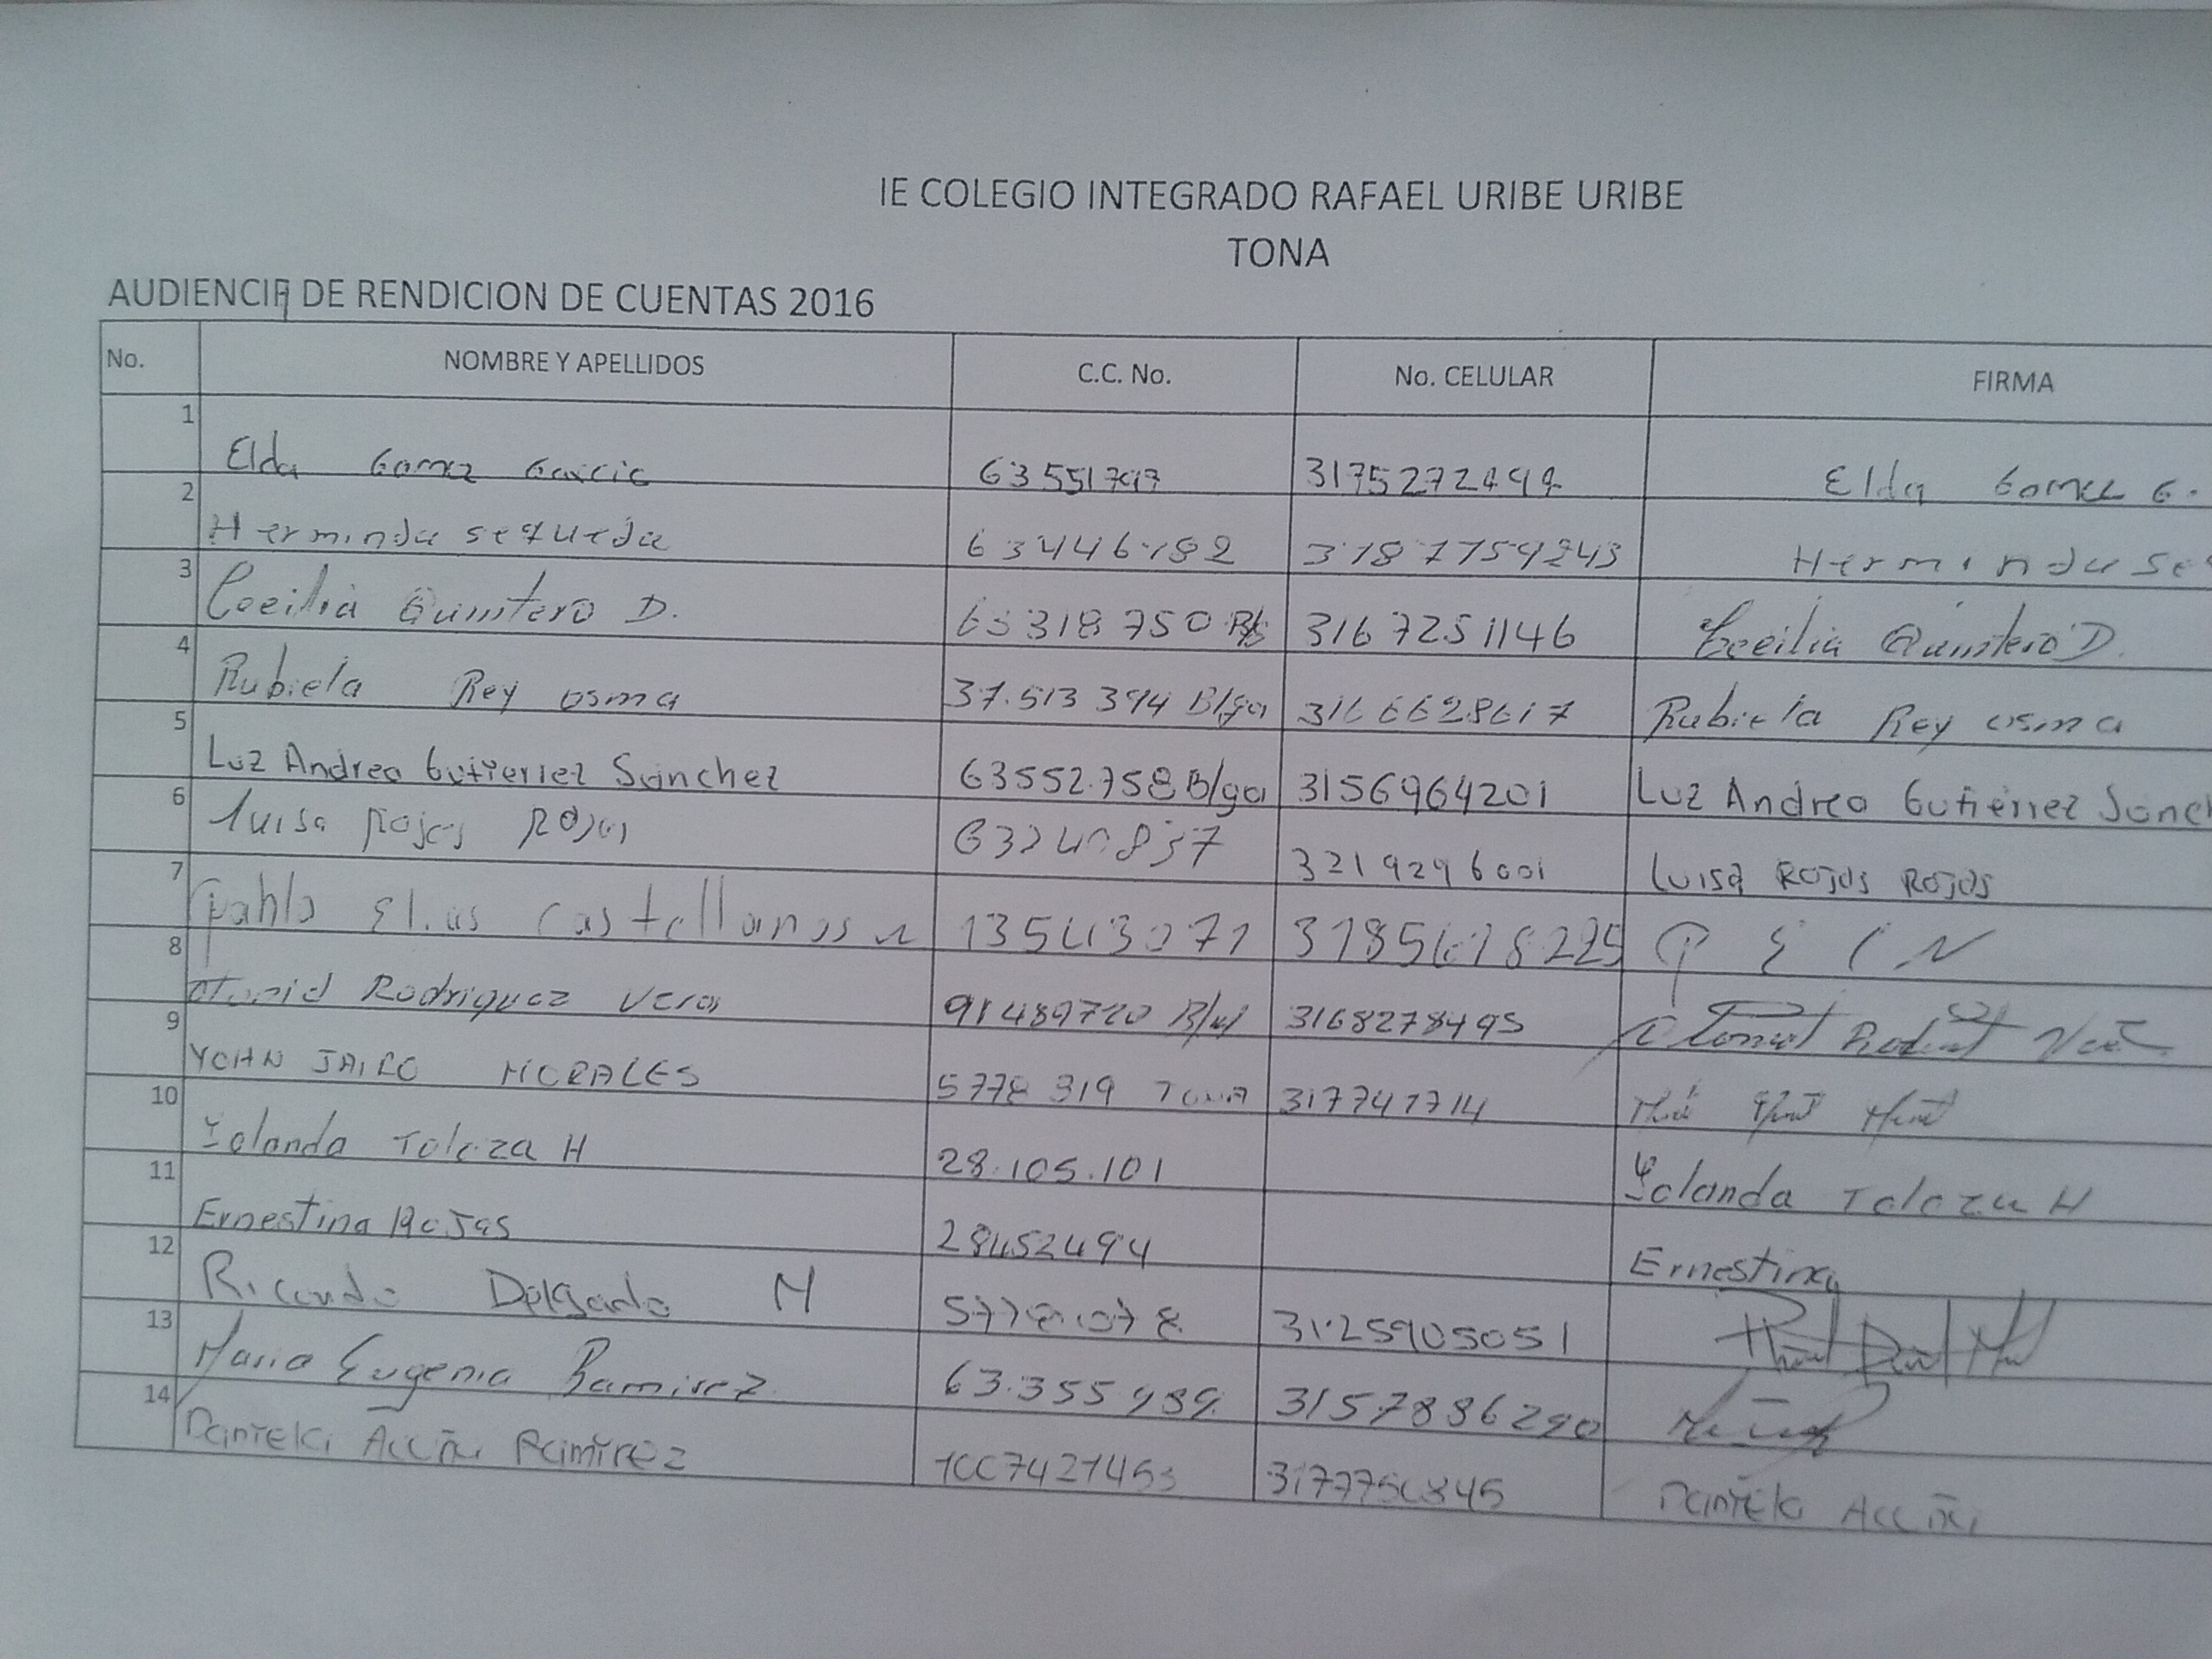 IE COLEGIO INTEGRADO RAFAEL URIBE URIBE
TONA
AUDIENCIA DE RENDICION DE CUENTAS 2016
No. NOMBRE Y APELLIDOS C.C. No. No. CELULAR FIRMA
1 Elda Gomez Garcia 63551797 Elda Gomez G.
2 Herminda sequeda 3187759243 Herminda se
3 Cecilia Quintero D. 63318750 3167251146 Cecilia Quintero D.
4 Rubiela Rey osma 37.513394 B/ga 3166628617 Rubiela Rey osma
5 Luz Andrea Gutierrez Sanchez 63552.758 B/ga 3156964201 Luz Andrea Gutierrez Sanch
6 luisa Rojas Rojas 3219296001 Luisa ROJAS ROJAS
7 pablo Elias castellanos n P E C N
8 Rodriguez Vera 3168278495
9 YOHN JAIRO MORALES 5778319 TONA 317741714
10 Yolanda Toloza H 28.105.101 Yolanda Toloza H
11 Ernestina ROJAS 28452494 Ernestina
12 Ricardo Delgado M 3125905051
13 Maria Eugenia Ramirez 63.355989 3157886290
14 Daniela Acuña Ramirez 1007421453 Daniela Acuña